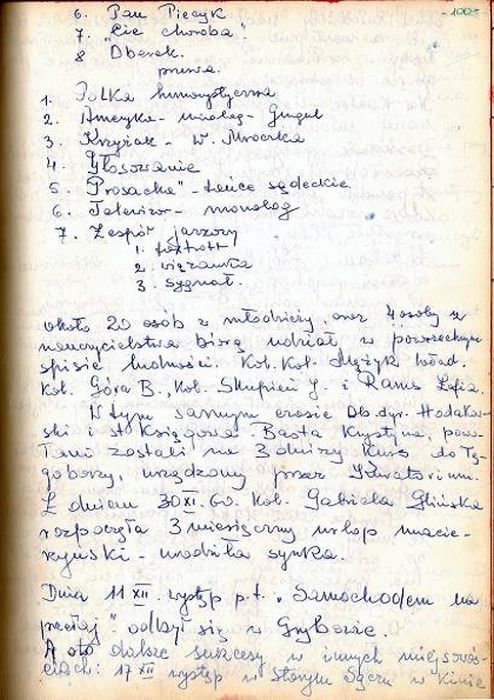 - 100 -
6. Pan Piecyk
7. "Ewe choroba.
8 Oberek.
przerwa.
1. Polka humorystyczna
2. Ameryka - monolog - Gugul
3. Krzyżak - W. Mroczka
4. Głosowanie
5. "Prosacka" - tańce sądeckie.
6. Telewizor - monolog
7. Zespół jazzowy
1. foxtrott
2. wiązanka
3. sygnał.
około 20 osób z młodzieży, oraz 4 osoby z
nauczycielstwa biorą udział w powszechnym
spisie ludności. Kol. Kol. Mężyk Wład.
Kol. Góra B., Kol. Skupień J. i Rams Zofia.
W tym samym czasie Ob. dyr. Hodakow-
ski i st. Księgowa. Basta Krystyna, powo-
łani zostali na 3 dniowy Kurs do Tę-
goborzy, urządzony przez Kuratorium.
Z dniem 30 XI. 60. kol. Gabriela Glińska
rozpoczęła 3 miesięczny urlop macie-
rzyński - urodziła synka.
Dnia 11 XII. występ p.t. "Samochodem na
przełaj" odbył się w Grybowie.
A oto dalsze sukcesy w innych miejscowoś-
ciach: 17 XII występ w Starym Sączu w Kinie